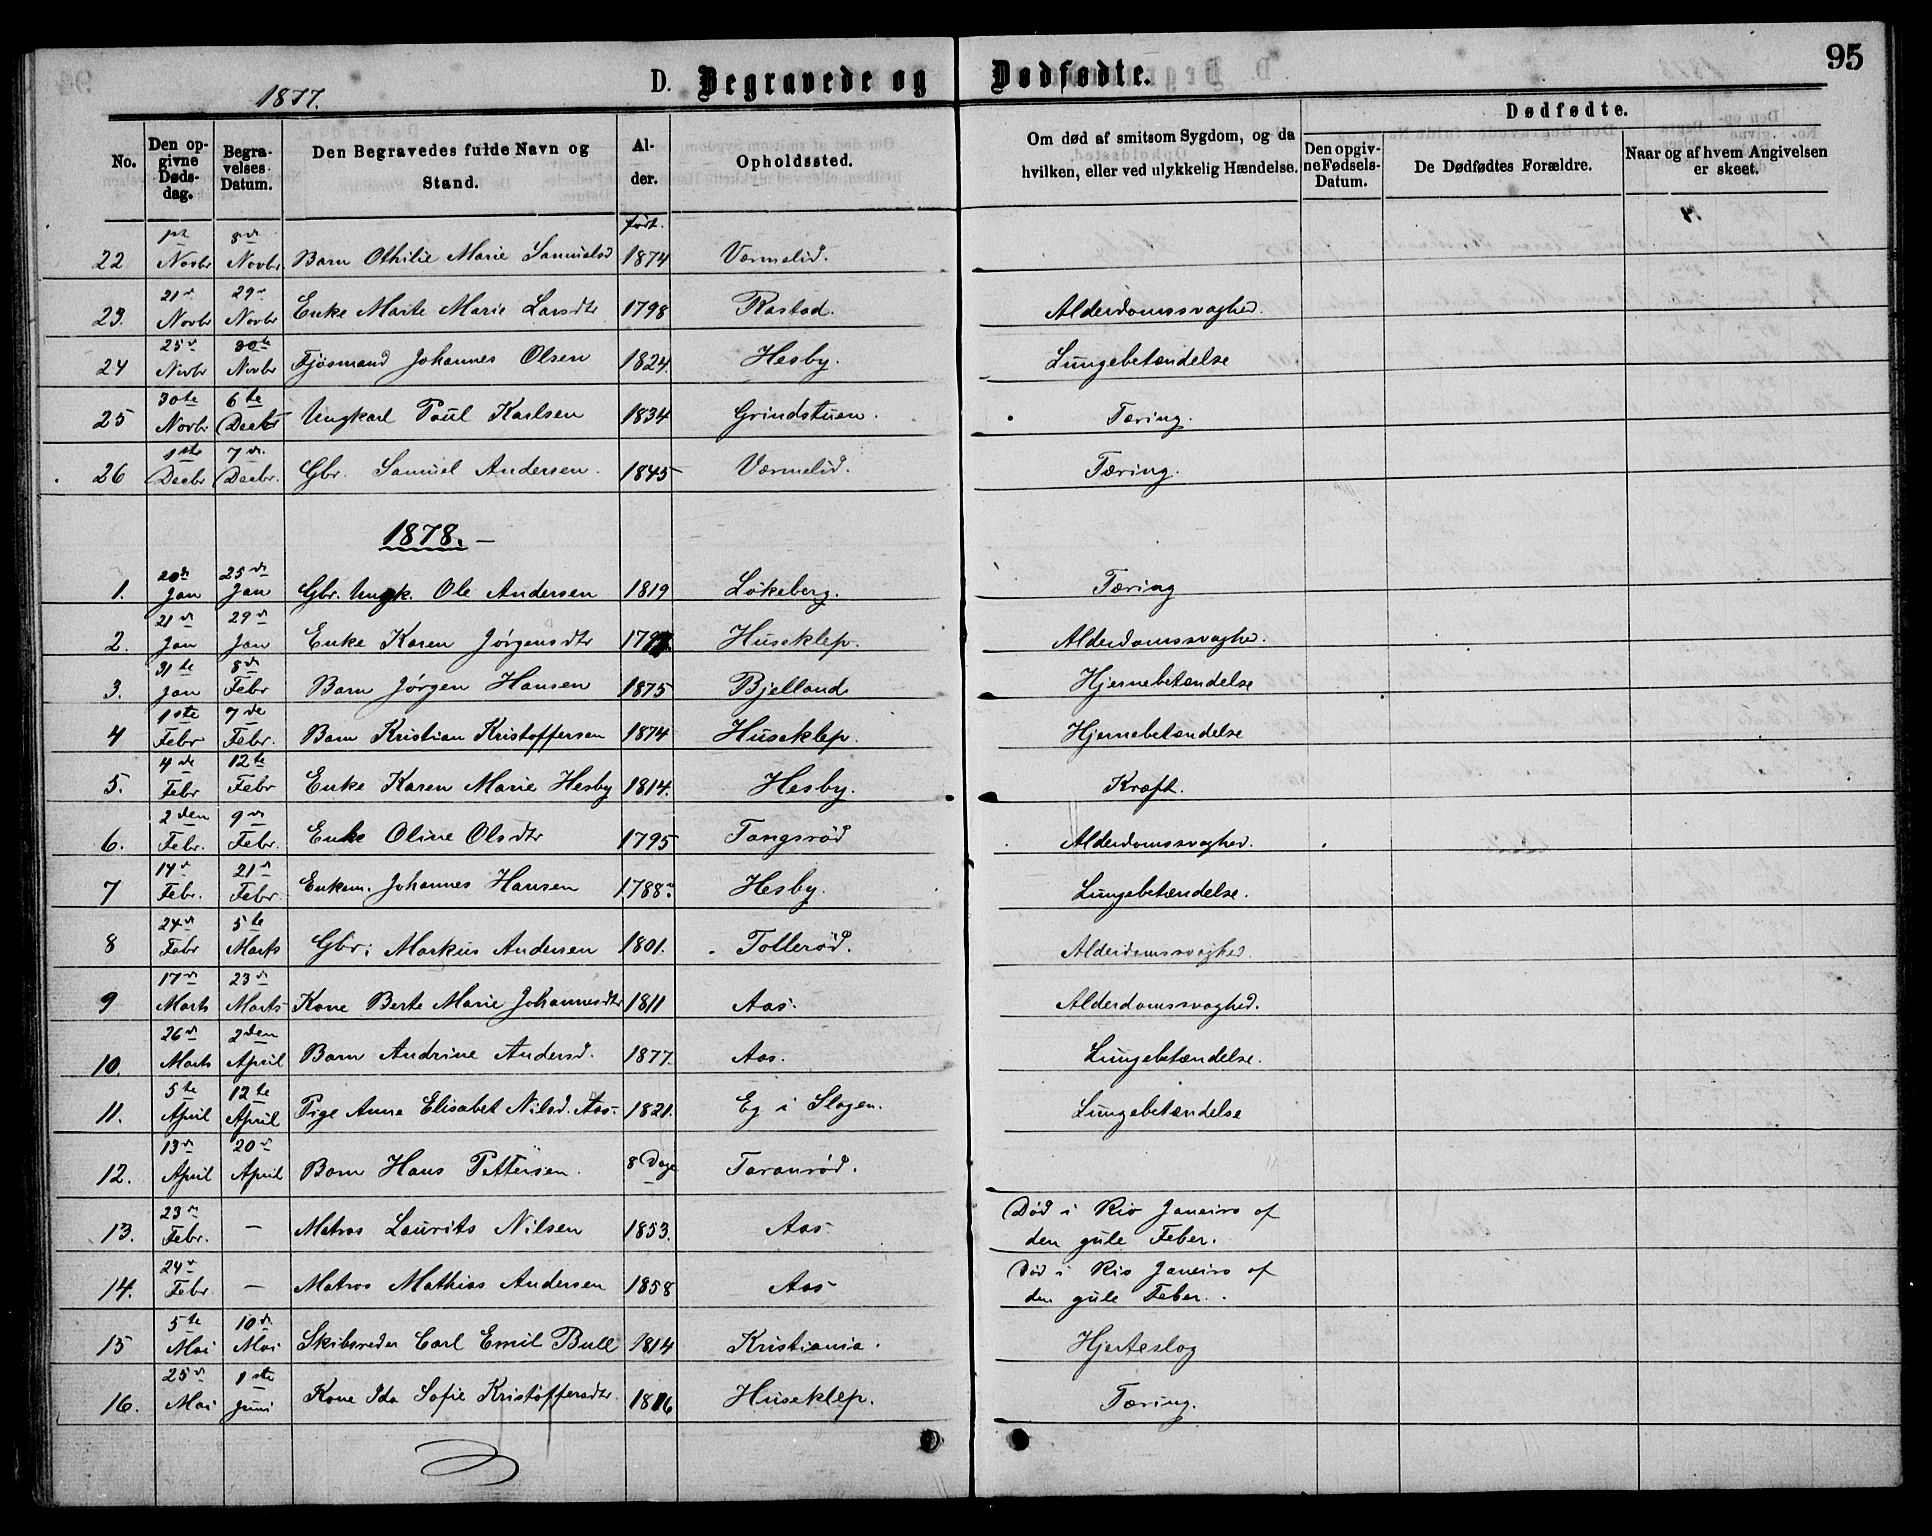 95
1877.
D. Begravede og Dødfødte.
No.
Den opgivne Dødsdag.
Begravelses Datum.
Den Begravedes fulde Navn og Stand.
Alder.
Opholdssted.
Om død af smitsom Sygdom, og da hvilken, eller ved ulykkelig Hændelse.
Dødfødte.
Den opgivne Fødsels-Datum.
De Dødfødtes Forældre.
Naar og af hvem Angivelsen er skeet.
født.
22 1ste Novbr 8de Novbr. Barn Othilie Marie Samuelsd 1874 Værmelid.
23. 21de Novbr 29de Novbr Enke Marte Marie Larsdtr 1798 Rastad. Alderdomssvaghed.
24 25de Novbr 30te Novbr Fjøsmand Johannes Olsen 1824. Hesby. Lungebetændelse
25 30te Novbr 6te Decbr Ungkarl Paul Karlsen 1834 Grindstuen. Tæring.
26 1ste Decbr 7de Decbr. Gbr. Samuel Andersen. 1845 Værmelid. Tæring.
1878.
1. 20de Jan 25de Jan Gbr. Ungk. Ole Andersen 1819 Løkeberg. Tæring
2. 21de Jan 29de Jan Enke Karen Jørgensdtr Huseklep. Alderdomssvaghed.
3. 31te Jan 8de Febr Barn Jørgen Hansen 1875 Bjelland Hjernebetændelse
4 1ste Febr 7de Febr. Barn Kristian Kristoffersen 1874 Huseklep. Hjernebetændelse
5. 4de Febr 12te Febr Enke Karen Marie Hesby 1814. Hesby. Kræft.
6. 2den Febr. 9de Febr. Enke Oline Olsdtr 1795 Tangsrød Alderdomssvaghed.
7 14de Febr. 21de Febr Enkem. Johannes Hansen 1788. Hesby. Lungebetændelse.
8 24de Febr 5te Marts Gbr: Markus Andersen 1801. Tollerød. Alderdomssvaghed
9 17de Marts 23de Marts Kone Berte Marie Johannesdtr 1811 Aas. Alderdomssvaghed.
10. 26de Marts 2den April Barn Andrine Andersd. 1877. Aas. Lungebetændelse.
11. 5te April 12te April Pige Anne Elisabet Nilsd. Aas. 1821. Eg i Slagen. Lungebetændelse
12. 13de April 20de April Barn Hans Pettersen. 8 Dage Taranrød.
13. 23de Febr. — Matros Laurits Nilsen 1853. Aas Død i Rio Janeiro af
den gule Feber.
14. 24de Febr — Matros Mathias Andersen 1858 Aas Død i Rio Janeiro af
den gule Feber.
15 5te Mai 10de Mai Skibsreder Carl Emil Bull 1814 Kristiania. Hjerteslag
16. 25de Mai 1ste Juni Kone Ida Sofie Kristoffersdtr. Huseklep. Tæring.